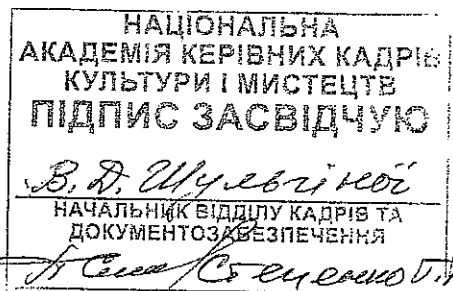 НАЦІОНАЛЬНА
АКАДЕМІЯ КЕРІВНИХ КАДРІВ
КУЛЬТУРИ І МИСТЕЦТВ
ПІДПИС ЗАСВІДЧУЮ
В. Д. Шульгіної
НАЧАЛЬНИК ВІДДІЛУ КАДРІВ ТА
ДОКУМЕНТОЗАБЕЗПЕЧЕННЯ